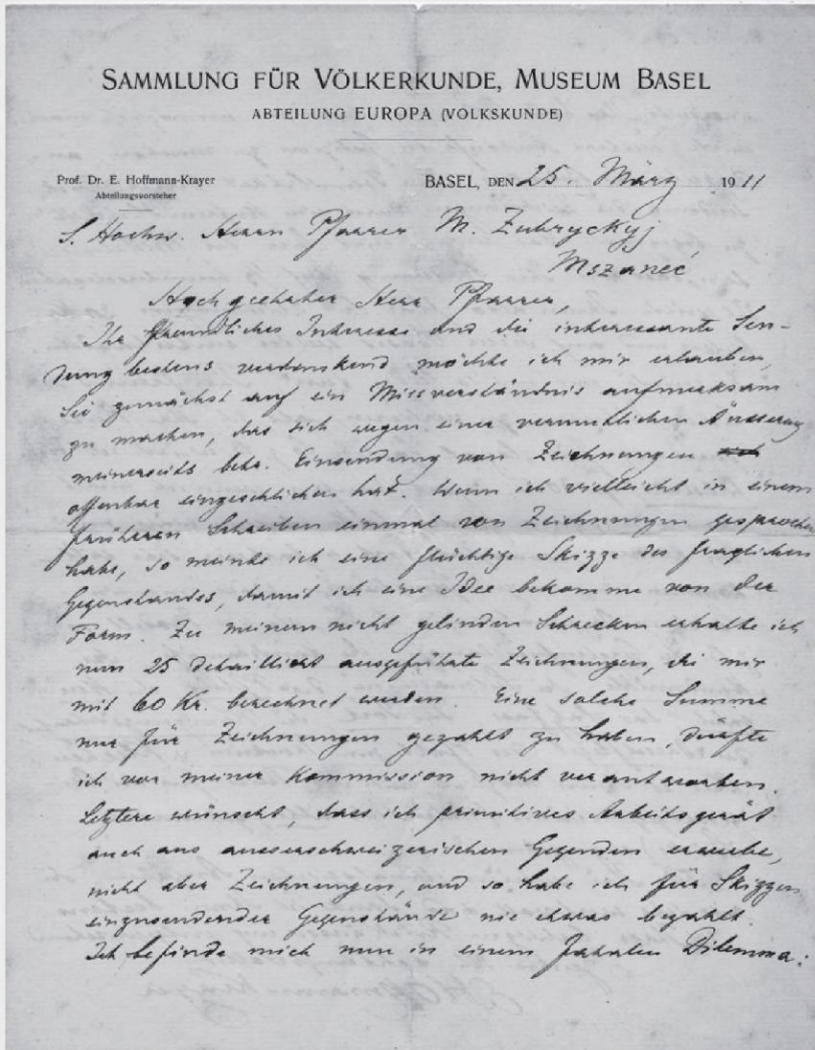 SAMMLUNG FÜR VÖLKERKUNDE, MUSEUM BASEL
ABTEILUNG EUROPA (VOLKSKUNDE)
Prof. Dr. E. Hoffmann-Krayer
Abteilungsvorsteher
BASEL, DEN 25. März 1911
S. Hochw. Herrn Pfarrer M. Zubryckyj
Mszaneć
Hochgeehrter Herr Pfarrer,
Ihr freundliches Interesse und die interessante Sen-
dung bestens verdankend möchte ich mir erlauben,
Sie zunächst auf ein Missverständnis aufmerksam
zu machen, das sich wegen einer vermutlichen Äusserung
meinerseits betr. Einsendung von Zeichnungen
offenbar eingeschlichen hat. Wenn ich vielleicht in einem
früheren Schreiben einmal von Zeichnungen gesprochen
habe, so meinte ich eine flüchtige Skizze des fraglichen
Gegenstandes, damit ich eine Idee bekomme von der
Form. Zu meinem nicht gelinden Schrecken erhalte ich
nun 25 detailliert ausgeführte Zeichnungen, die mir
mit 60 Kr. berechnet werden. Eine solche Summe
nur für Zeichnungen gezahlt zu haben, dürfte
ich vor meiner Kommission nicht verantworten.
Letztere wünscht, dass ich primitives Arbeitsgerät
auch aus ausserschweizerischen Gegenden erwerbe,
nicht aber Zeichnungen, und so habe ich für Skizzen
einzusendender Gegenstände nie etwas bezahlt.
Ich befinde mich nun in einem fatalen Dilemma: